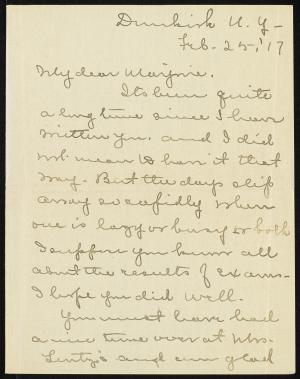 Dunkirk N.Y-
Feb- 25,'17
My dear Marjorie.
Its been quite
a long time since I have
written you. and I did
not mean to have it that
way- But the days slip
away so rapidly when
one is lazy or busy or both
I suppose you know all
about the results of Exams-
I hope you did well.
You must have had
a nice time over at Mrs.
Lentz's and am glad